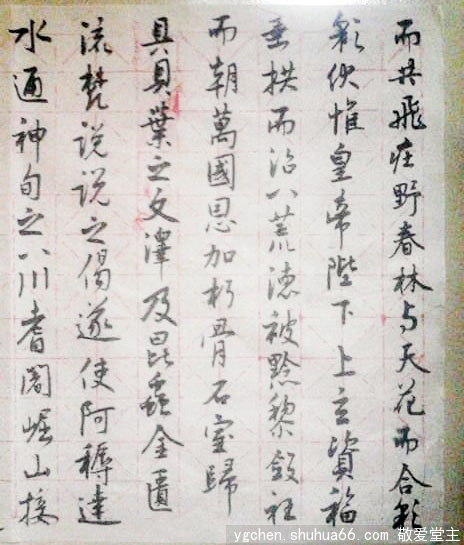 而共飛庄野春林与天花而合彩
彩伏惟皇帝陛下上玄資福
垂拱而治八荒德被黔黎斂衽
而朝萬國恩加朽骨石室歸
貝貝葉之文澤及昆蟲金匱
流梵說說之偈遂使阿耨達
水通神甸之八川耆闍崛山接
ygchen.shuhua66.com 敬爱堂主